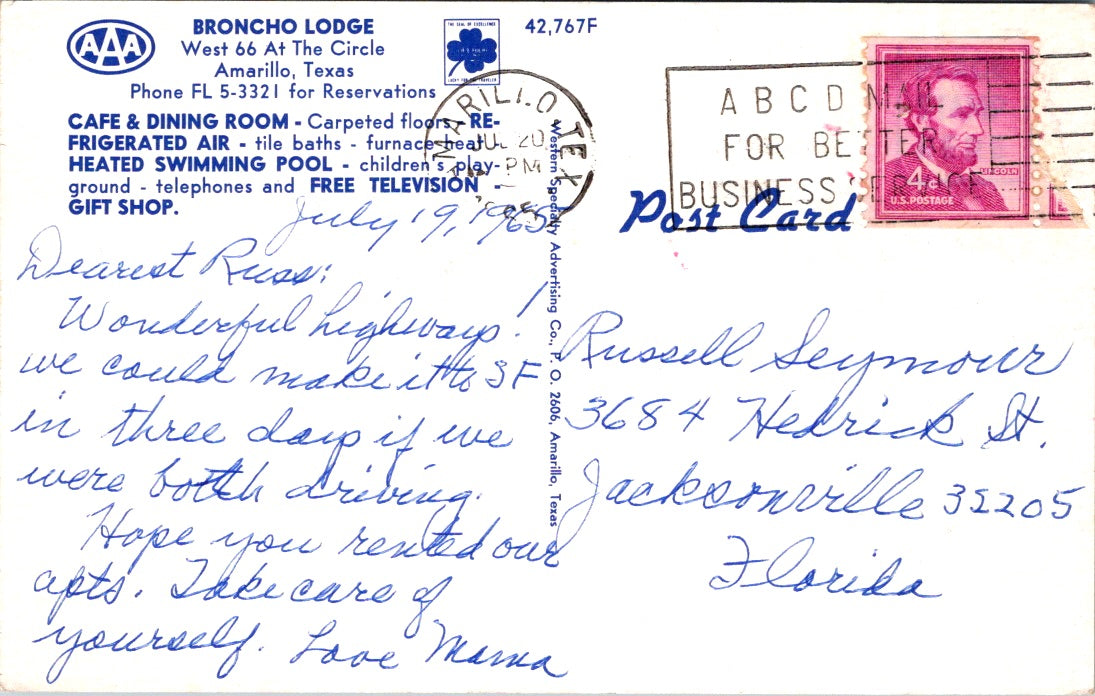 AAA
BRONCHO LODGE
West 66 At The Circle
Amarillo, Texas
Phone FL 5-3321 for Reservations
CAFE & DINING ROOM - Carpeted floors - RE-
FRIGERATED AIR - tile baths - furnace heat -
HEATED SWIMMING POOL - children's play-
ground - telephones and FREE TELEVISION -
GIFT SHOP.
THE SEAL OF EXCELLENCE
LUCKY FOR THE TRAVELER
42,767F
AMARILLO TEX
JUL 20
PM
A B C D MAIL
FOR BETTER
BUSINESS SERVICE
LINCOLN
4¢
U.S. POSTAGE
Post Card
July 19, 1965
Dearest Russ:
Wonderful highways!
we could make it to SF
in three days if we
were both driving.
Hope you rented our
apts. Take care of
yourself. Love Mama
Western Specialty Advertising Co., P. O. 2606, Amarillo, Texas
Russell Seymour
3684 Hedrick St.
Jacksonville 32205
Florida